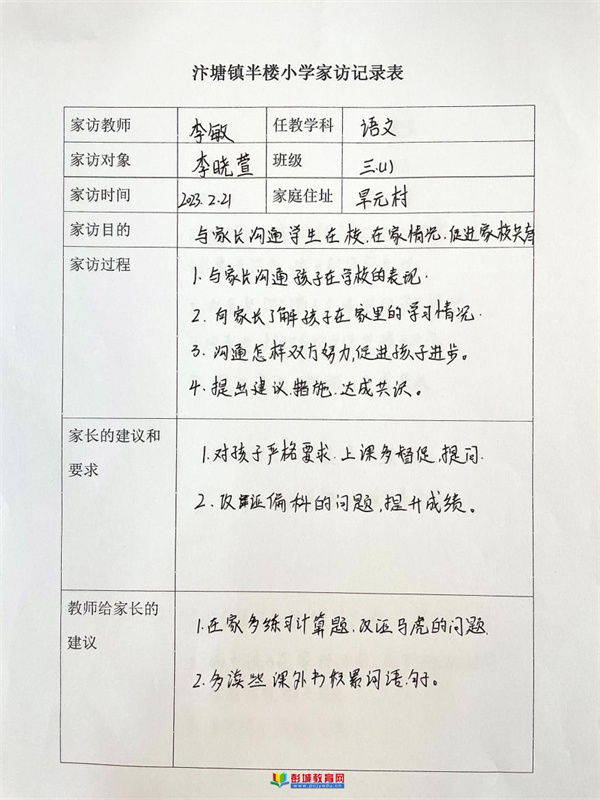 汴塘镇半楼小学家访记录表
家访教师 李敏 任教学科 语文
家访对象 李晓萱 班级 三.(1)
家访时间 2023.2.21 家庭住址 早元村
家访目的 与家长沟通学生在校.在家情况.促进家校共育
家访过程
1.与家长沟通孩子在学校的表现.
2.向家长了解孩子在家里的学习情况.
3.沟通怎样双方努力,促进孩子进步。
4.提出建议.措施.达成共识。
家长的建议和
要求
1.对孩子严格要求.上课多督促,提问.
2.改正偏科的问题,提升成绩。
教师给家长的
建议
1.在家多练习计算题.改正马虎的问题.
2.多读些课外书积累词语.句。
彭城教育网
www.pcjyedu.cn